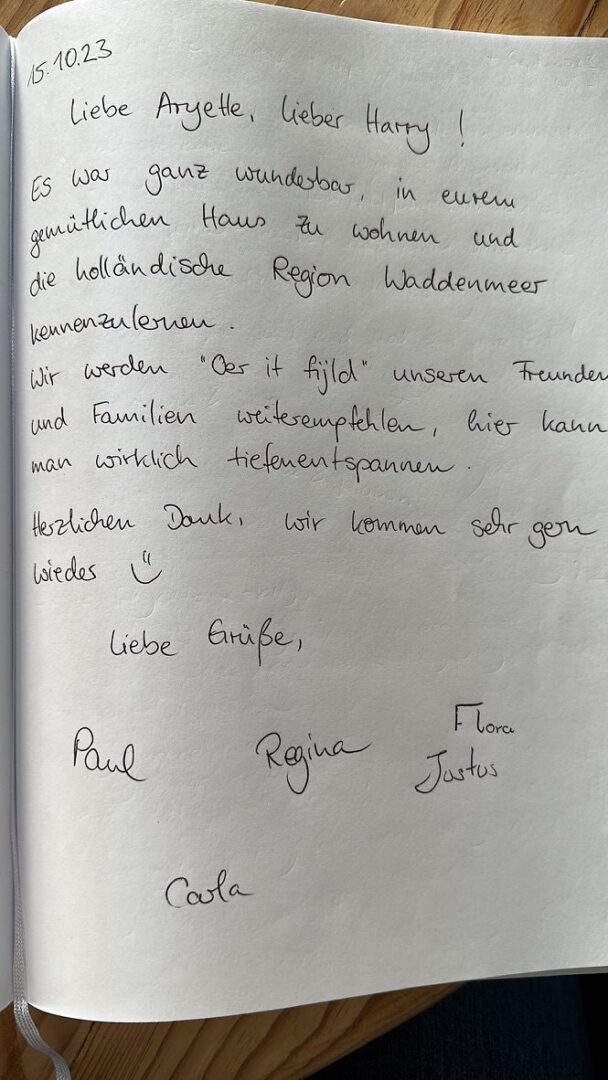 15.10.23
Liebe Aryette, lieber Harry !
Es war ganz wunderbar, in eurem
gemütlichen Haus zu wohnen und
die holländische Region Waddenmeer
kennenzulernen.
Wir werden "Oer it fijld" unseren Freunden
und Familien weiterempfehlen, hier kann
man wirklich tiefenentspannen.
Herzlichen Dank, wir kommen sehr gern
wieder
Liebe Grüße,
Paul Regina Flora
Justus
Carla